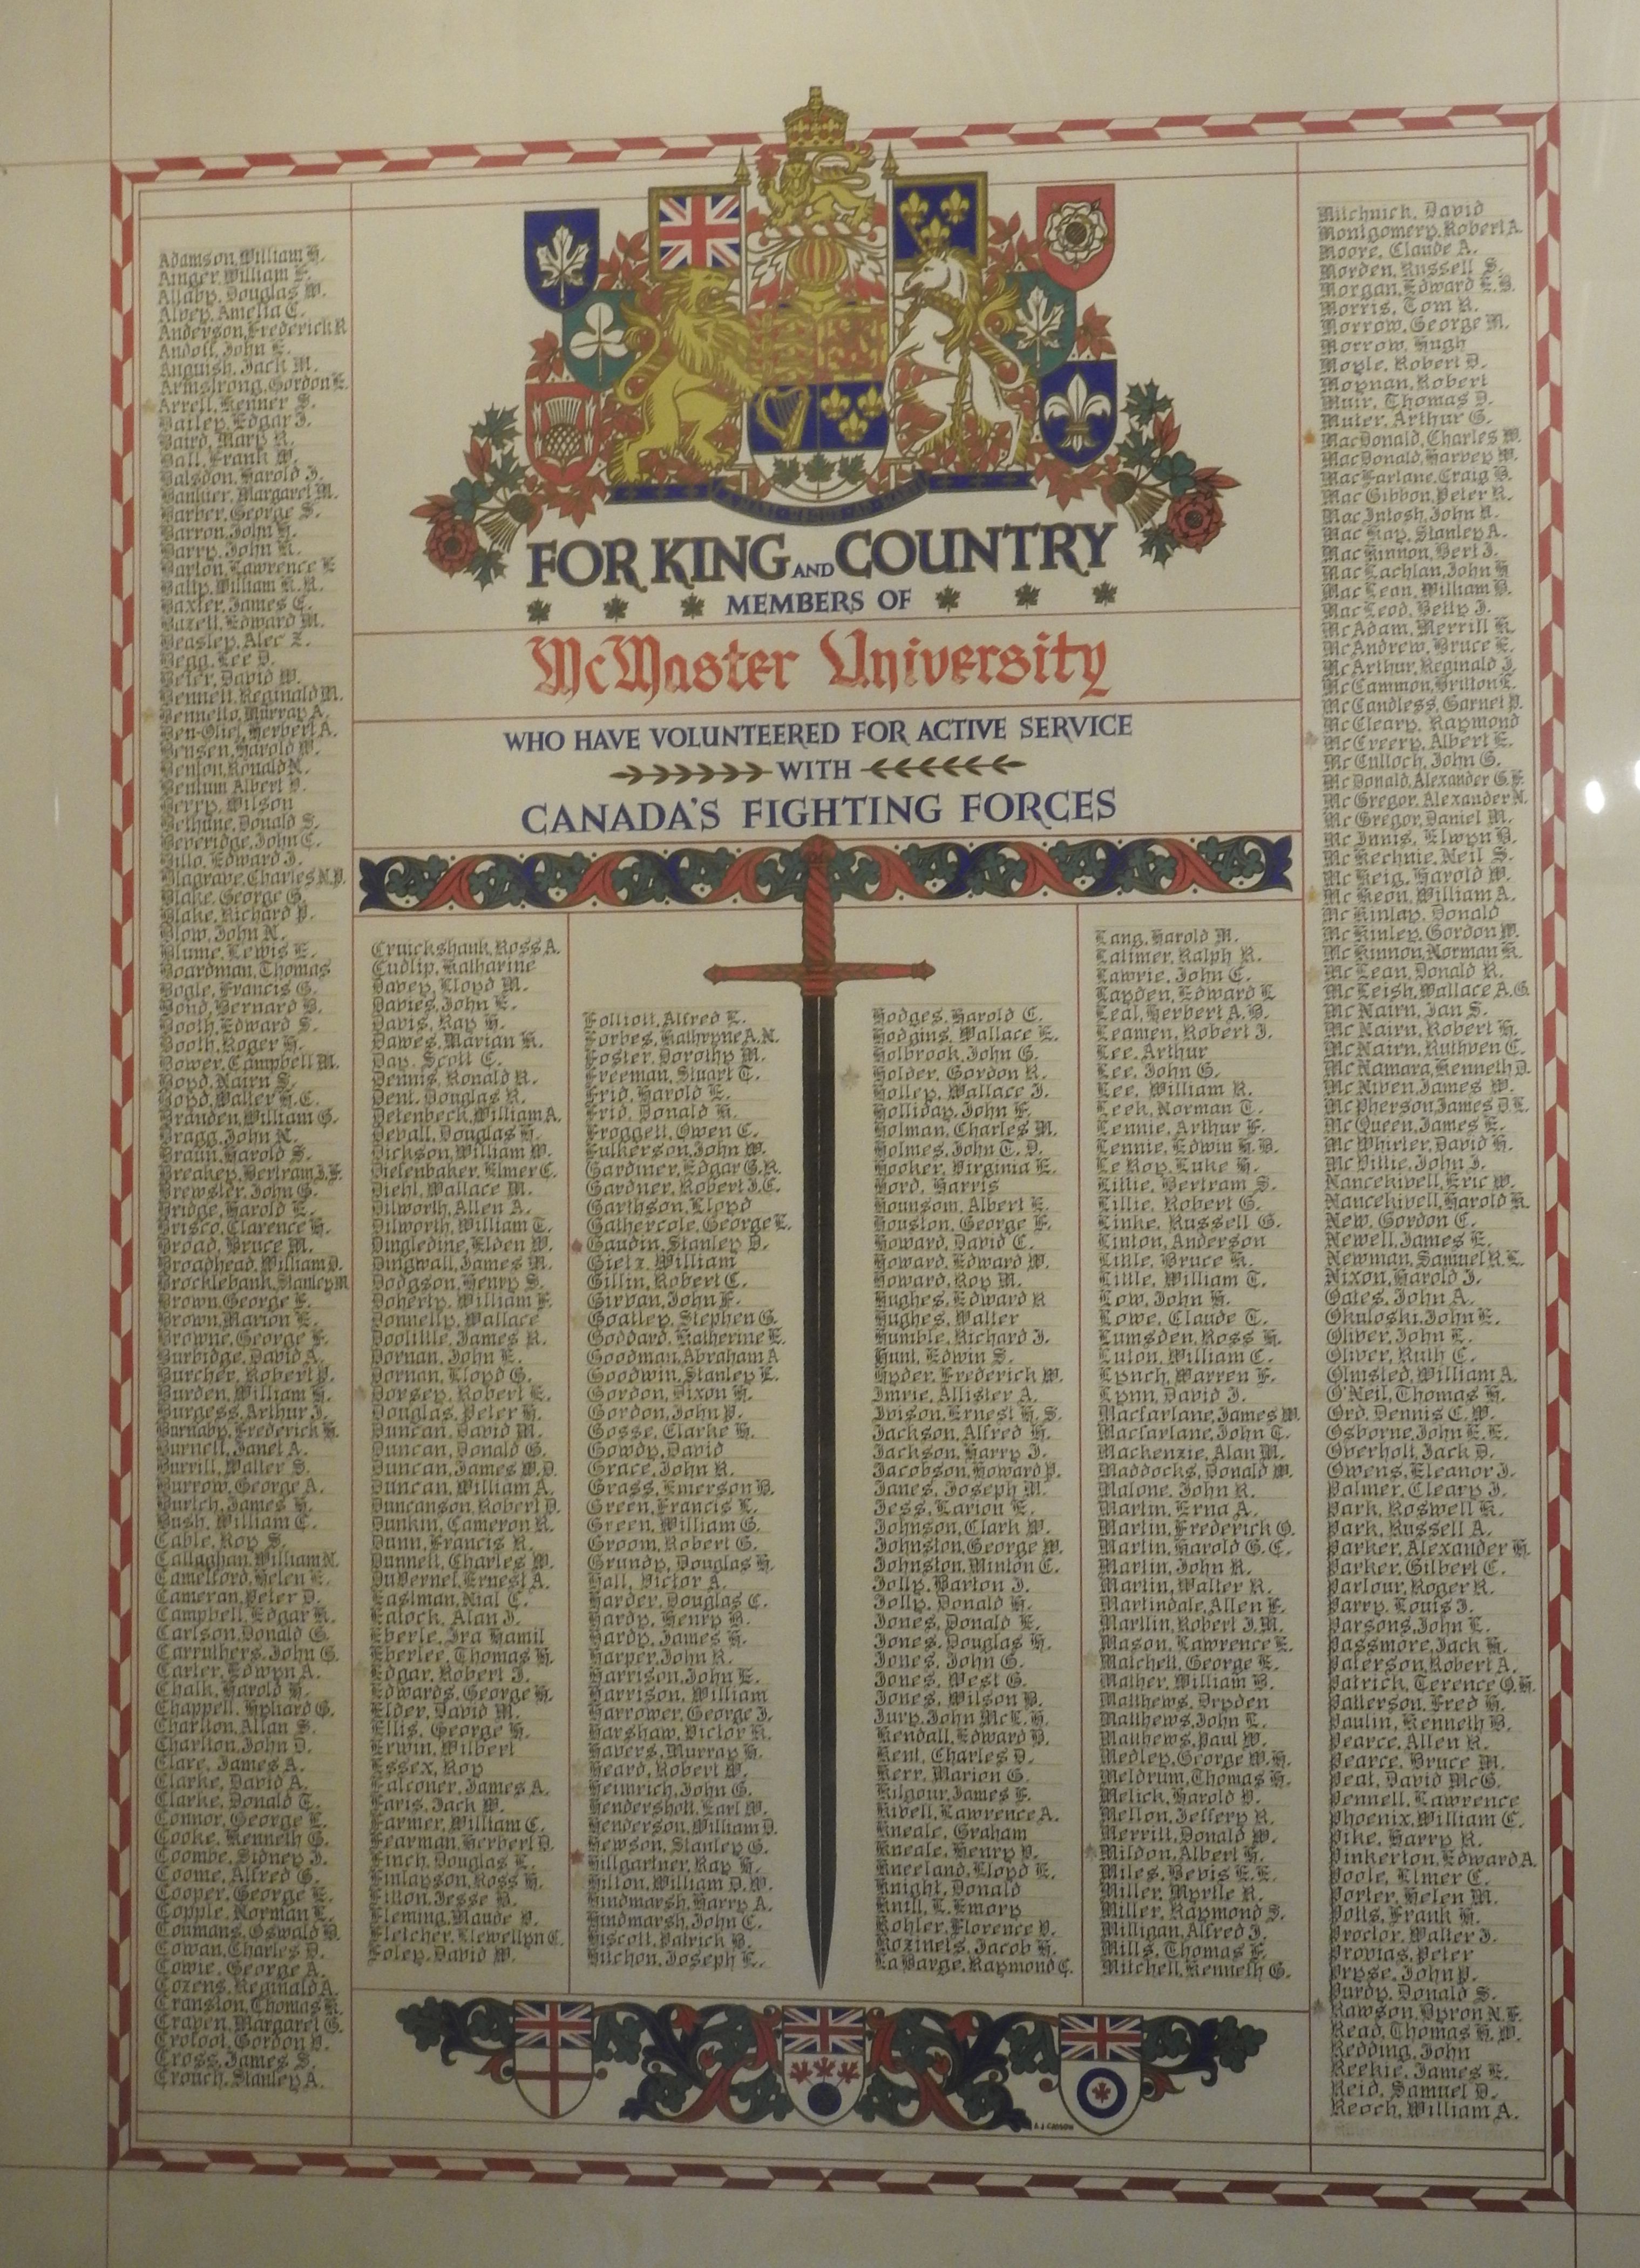 FOR KING AND COUNTRY
MEMBERS OF
McMaster University
WHO HAVE VOLUNTEERED FOR ACTIVE SERVICE
WITH
CANADA'S FIGHTING FORCES
Adamson, William H.
Ainger, William F.
Allaby, Douglas W.
Alvey, Amelia C.
Anderson, Frederick R.
Andoff, John E.
Anguish, Jack M.
Armstrong, Gordon E.
Arrell, Kenner S.
Bailey, Edgar J.
Baird, Mary R.
Ball, Frank W.
Balsdon, Harold J.
Baukier, Margaret M.
Barber, George S.
Barron, John H.
Barry, John R.
Barton, Lawrence E
Batty, William R.R.
Baxter, James C.
Bazell, Edward M.
Beasley, Alec Z.
Begg, Lee D.
Beler, David W.
Bennett, Reginald M.
Bennetto, Murray A.
Ben-Oliel, Herbert A.
Bensen, Harold W.
Benton, Ronald N.
Bentum Albert B.
Berry, Wilson
Bethune, Donald S.
Beveridge, John C.
Billo, Edward J.
Blagrave, Charles N.P.
Blake, George G.
Blake, Richard P.
Blow, John N.
Blume, Lewis E.
Boardman, Thomas
Bogle, Francis G.
Bond, Bernard B.
Booth, Edward S.
Booth, Roger H.
Bower, Campbell M.
Boyd, Nairn S.
Boyd, Walter H.C.
Branden, William G.
Bragg, John N.
Braun, Harold S.
Breakey, Bertram J.F.
Brewster, John G.
Bridge, Harold E.
Brisco, Clarence H.
Broad, Bruce M.
Broadhead, William D.
Brocklebank, Stanley M
Brown, George F.
Brown, Marion E.
Browne, George F.
Burbidge, David A.
Burcher, Robert P.
Burden, William H.
Burgess, Arthur J.
Burnaby, Frederick H.
Burnell, Janet A.
Burrill, Walter S.
Burrow, George A.
Burtch, James H.
Bush, William C.
Cable, Roy S.
Callaghan, William N.
Camelford, Helen E.
Cameron, Peter D.
Campbell, Edgar K.
Carlson, Donald G.
Carruthers, John G.
Carter, Edwyn A.
Chalk, Harold H.
Chappell, Hyliard G.
Charlton, Allan S.
Charlton, John D.
Clare, James A.
Clarke, David A.
Clarke, Donald T.
Connor, George E.
Cooke, Kenneth G.
Coombe, Sidney J.
Coome, Alfred G.
Cooper, George E.
Copple, Norman E.
Coumans, Oswald B.
Cowan, Charles D.
Cowie, George A.
Cozens, Reginald A.
Cranston, Thomas K.
Craven, Margaret G.
Crofoot, Gordon B.
Cross, James S.
Crouch, Stanley A.
Cruickshank, Ross A.
Cudlip, Katharine
Davey, Lloyd M.
Davies, John E.
Davis, Ray H.
Dawes, Marian K.
Day, Scott C.
Dennis, Ronald R.
Dent, Douglas R.
Detenbeck, William A.
Devall, Douglas H.
Dickson, William W.
Diefenbaker, Elmer C.
Diehl, Wallace M.
Dilworth, Allen A.
Dilworth, William T.
Dingledine, Elden W.
Dingwall, James M.
Dodgson, Henry S.
Doherty, William F.
Donnelly, Wallace
Doolittle, James R.
Dornan, John E.
Dornan, Lloyd G.
Dorsey, Robert E.
Douglas, Peter H.
Duncan, David M.
Duncan, Donald G.
Duncan, James W.D.
Duncan, William A.
Duncanson, Robert D.
Dunkin, Cameron R.
Dunn, Francis R.
Dunnett, Charles W.
DuVernet, Ernest A.
Eastman, Nial C.
Eatock, Alan J.
Eberle, Ira Hamil
Eberlee, Thomas H.
Edgar, Robert J.
Edwards, George H.
Elder, David M.
Ellis, George H.
Erwin, Wilbert
Essex, Roy
Falconer, James A.
Faris, Jack W.
Farmer, William C.
Fearman, Herbert D.
Finch, Douglas E.
Finlayson, Ross H.
Fitton, Jesse B.
Fleming, Maude V.
Fletcher, Llewellyn C.
Foley, David W.
Folliott, Alfred E.
Forbes, Kathryne A.N.
Foster, Dorothy M.
Freeman, Stuart T.
Frid, Harold E.
Frid, Donald K.
Froggett, Owen C.
Fulkerson, John W.
Gardiner, Edgar G.R.
Gardner, Robert J.C.
Garthson, Lloyd
Gathercole, George E.
Gaudin, Stanley D.
Gietz, William
Gillin, Robert C.
Girvan, John F.
Goatley, Stephen G.
Goddard, Katherine E.
Goodman, Abraham A
Goodwin, Stanley E.
Gordon, Dixon H.
Gordon, John P.
Gosse, Clarke H.
Gowdy, David
Grace, John R.
Grass, Emerson B.
Green, Francis L.
Green, William G.
Groom, Robert G.
Grundy, Douglas H.
Hall, Victor A.
Harder, Douglas C.
Hardy, Henry B.
Hardy, James H.
Harper, John R.
Harrison, John E.
Harrison, William
Harrower, George J.
Harshaw, Victor K.
Havers, Murray H.
Heard, Robert W.
Heinrich, John G.
Hendershott, Earl W.
Henderson, William D.
Hewson, Stanley G.
Hillgartner, Ray H.
Hilton, William D.W.
Hindmarsh, Harry A.
Hindmarsh, John C.
Hiscott, Patrick B.
Hitchon, Joseph E.
Hodges, Harold C.
Hodgins, Wallace E.
Holbrook, John G.
Holder, Gordon R.
Holley, Wallace J.
Holliday, John F.
Holman, Charles M.
Holmes, John T. D.
Hooker, Virginia E.
Hord, Harris
Hounsom, Albert E.
Houston, George F.
Howard, David C.
Howard, Edward W.
Howard, Roy M.
Hughes, Edward R
Hughes, Walter
Humble, Richard J.
Hunt, Edwin S.
Hyder, Frederick W.
Imrie, Allister A.
Ivison, Ernest H. S.
Jackson, Alfred H.
Jackson, Harry J.
Jacobson, Howard P.
Janes, Joseph M.
Jess, Larion E.
Johnson, Clark W.
Johnston, George W.
Johnston, Minton C.
Jolly, Barton J.
Jolly, Donald H.
Jones, Donald E.
Jones, Douglas H.
Jones, John G.
Jones, West G.
Jones, Wilson B.
Jury, John McC. H.
Kendall, Edward B.
Kent, Charles D.
Kerr, Marion G.
Kilgour, James F.
Kivell, Lawrence A.
Kneale, Graham
Kneale, Henry P.
Kneeland, Lloyd E.
Knight, Donald
Knill, L. Emory
Kohler, Florence V.
Kozinets, Jacob H.
LaBarge, Raymond C.
Lang, Harold M.
Latimer, Ralph R.
Lawrie, John C.
Layden, Edward L
Leal, Herbert A.B.
Leamen, Robert J.
Lee, Arthur
Lee, John G.
Lee, William R.
Leek, Norman T.
Lennie, Arthur F.
Lennie, Edwin H.B.
Le Roy, Luke H.
Lillie, Bertram S.
Lillie, Robert G.
Linke, Russell G.
Linton, Anderson
Little, Bruce K.
Little, William T.
Low, John H.
Lowe, Claude T.
Lumsden, Ross H.
Luton, William C.
Lynch, Warren F.
Lynn, David J.
Macfarlane, James W.
Macfarlane, John T.
Mackenzie, Alan M.
Maddocks, Donald W.
Malone, John R.
Martin, Erna A.
Martin, Frederick O.
Martin, Harold G. C.
Martin, John R.
Martin, Walter R.
Martindale, Allen E.
Martlin, Robert J.M.
Mason, Lawrence E.
Matchett, George E.
Mather, William B.
Matthews, Dryden
Matthews, John E.
Matthews, Paul W.
Medley, George W.H.
Meldrum, Thomas H.
Melick, Harold V.
Mellon, Jeffery R.
Merritt, Donald W.
Mildon, Albert H.
Miles, Bevis E.E.
Miller, Myrtle R.
Miller, Raymond S.
Milligan, Alfred J.
Mills, Thomas F.
Mitchell, Kenneth G.
Mitchnick, David
Montgomery, Robert A.
Moore, Claude A.
Morden, Russell S.
Morgan, Edward E.B.
Morris, Tom R.
Morrow, George M.
Morrow, Hugh
Moyle, Robert D.
Moynan, Robert
Muir, Thomas D.
Muter, Arthur G.
MacDonald, Charles W.
MacDonald, Harvey W.
MacFarlane, Craig B.
MacGibbon, Peter R.
MacIntosh, John A.
MacKay, Stanley A.
MacKinnon, Bert J.
MacLachlan, John H
MacLean, William B.
MacLeod, Betty J.
McAdam, Merrill K.
McAndrew, Bruce E.
McArthur, Reginald J.
McCammon, Britton E.
McCandless, Garnet P.
McCleary, Raymond
McCreery, Albert E.
McCulloch, John G.
McDonald, Alexander G.F.
McGregor, Alexander N.
McGregor, Daniel M.
McInnis, Elwyn B.
McKechnie, Neil S.
McKeig, Harold W.
McKeon, William A.
McKinlay, Donald
McKinley, Gordon W.
McKinnon, Norman K.
McLean, Donald R.
McLeish, Wallace A.G.
McNairn, Ian S.
McNairn, Robert H.
McNairn, Ruthven C.
McNamara, Kenneth D.
McNiven, James W.
McPherson, James D.E.
McQueen, James E.
McWhirter, David H.
McVittie, John J.
Nancekivell, Eric W.
Nancekivell, Harold K.
New, Gordon C.
Newell, James E.
Newman, Samuel R.L.
Nixon, Harold J.
Oates, John A.
Okuloski, John E.
Oliver, John E.
Oliver, Ruth C.
Olmsted, William A.
O'Neil, Thomas H.
Ord, Dennis C. W.
Osborne, John E.E.
Overholt, Jack D.
Owens, Eleanor J.
Palmer, Cleary J.
Park, Roswell K.
Park, Russell A.
Parker, Alexander H.
Parker, Gilbert C.
Parlour, Roger R.
Parry, Louis J.
Parsons, John E.
Passmore, Jack H.
Paterson, Robert A.
Patrick, Terence O.H.
Patterson, Fred H.
Paulin, Kenneth B.
Pearce, Allen R.
Pearce, Bruce M.
Peat, David McG.
Pennell, Lawrence
Phoenix, William C.
Pike, Harry R.
Pinkerton, Edward A.
Poole, Elmer C.
Porter, Helen M.
Potts, Frank H.
Proctor, Walter J.
Provias, Peter
Pryse, John P.
Purdy, Donald S.
Rawson, Byron N.F.
Read, Thomas H.W.
Redding, John
Reekie, James E.
Reid, Samuel D.
Reoch, William A.